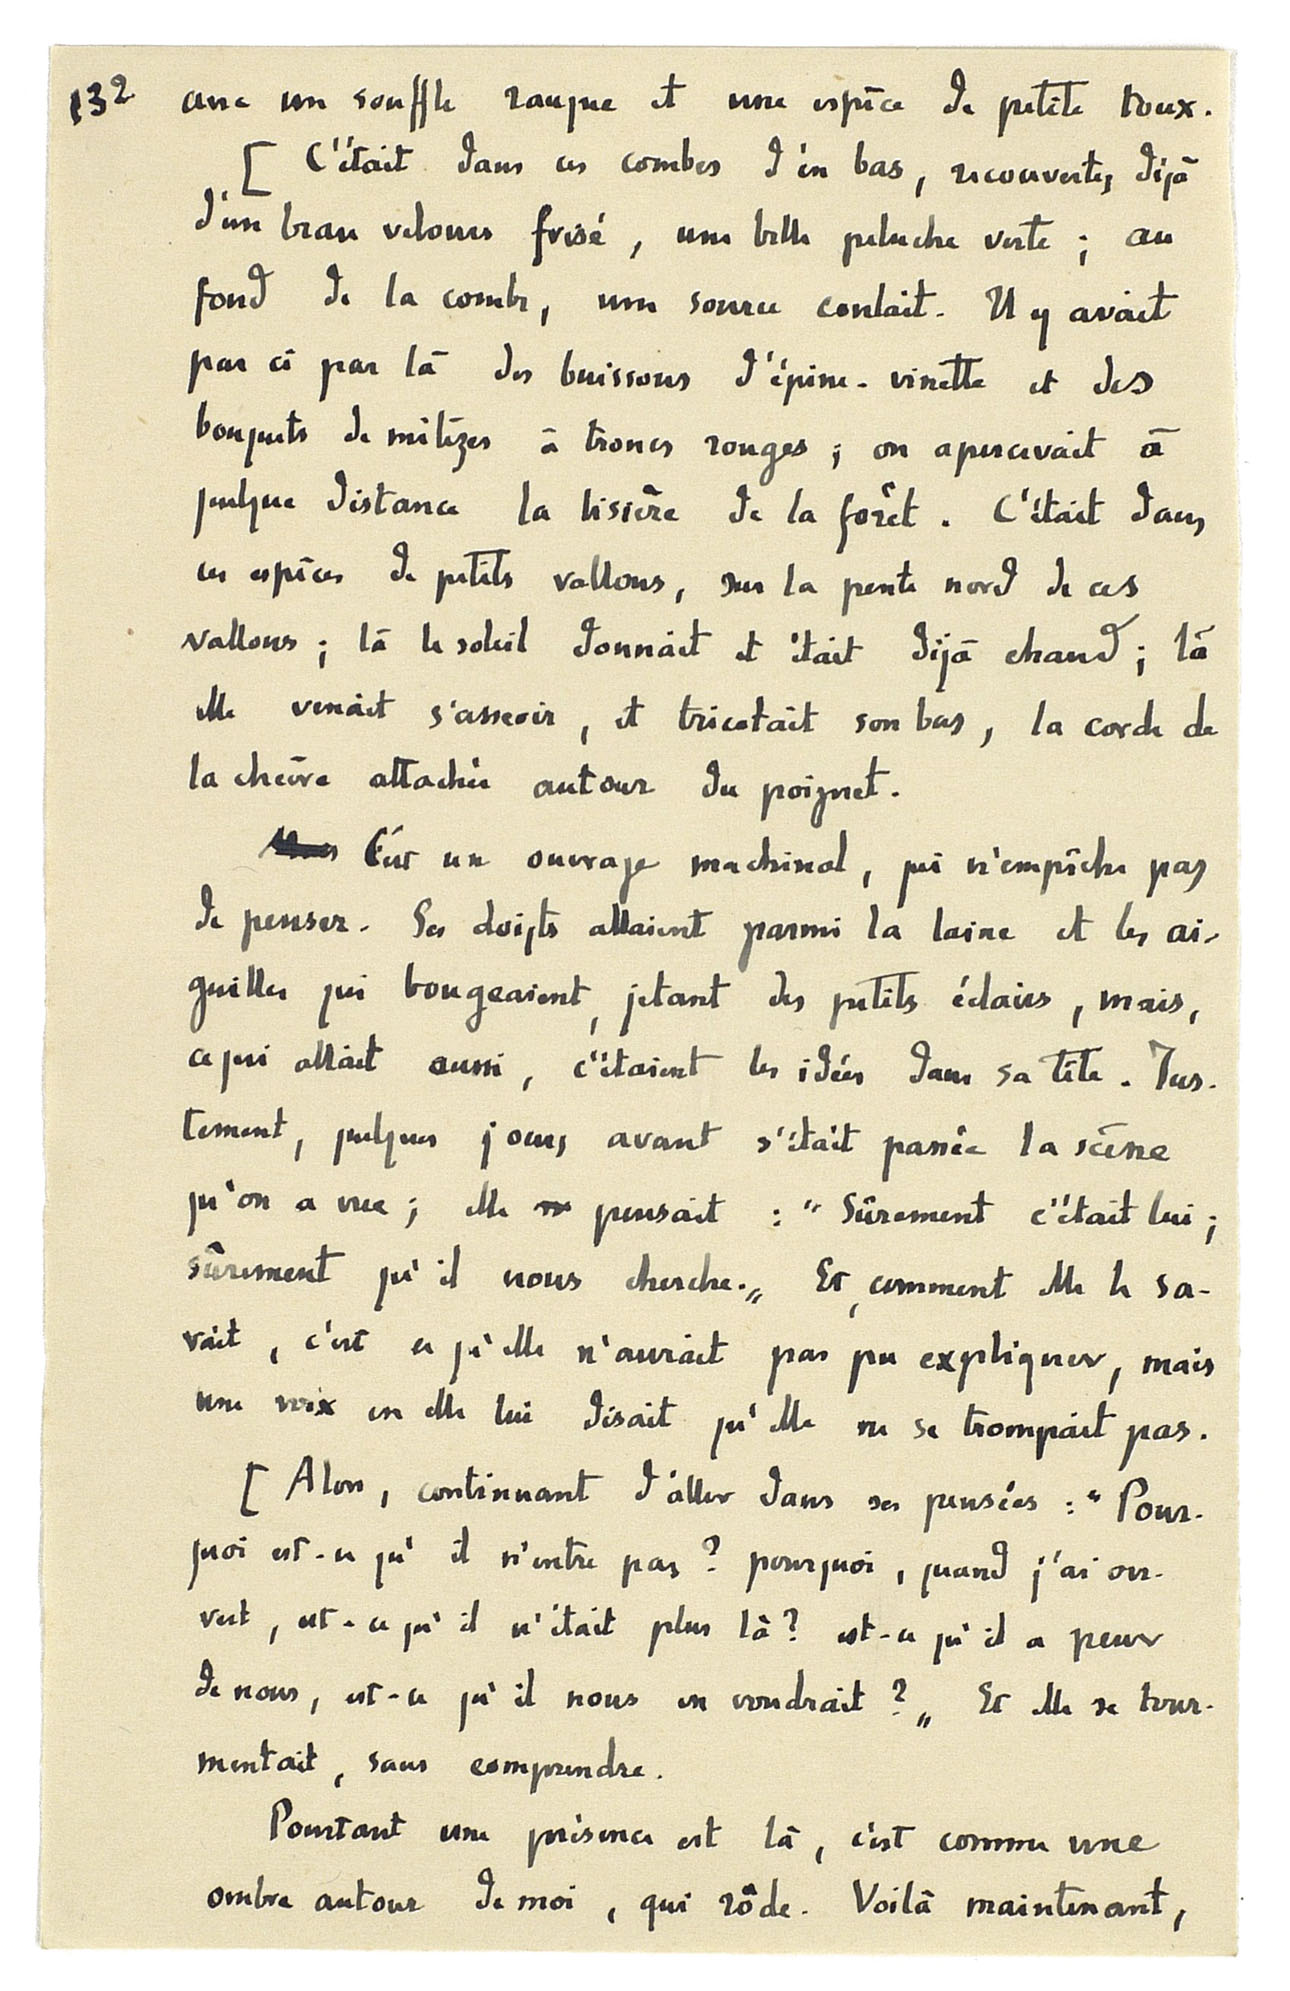 132 avec un souffle rauque et une espèce de petite toux.
[ C'était dans ces combes d'en bas, recouvertes déjà
d'un beau velours frisé, une belle peluche verte ; au
fond de la combe, une source coulait. Il y avait
par ci par là des buissons d'épine-vinette et des
bouquets de mélèzes à troncs rouges ; on apercevait à
quelque distance la lisière de la forêt. C'était dans
ces espèces de petits vallons, sur la pente nord de ces
vallons ; là le soleil donnait et était déjà chaud ; là
elle venait s'asseoir, et tricotait son bas, la corde de
la chèvre attachée autour du poignet.
C'est un ouvrage machinal, qui n'empêche pas
de penser. Ses doigts allaient parmi la laine et les ai-
guilles qui bougeaient, jetant des petits éclairs, mais,
ce qui allait aussi, c'étaient les idées dans sa tête. Jus-
tement, quelques jours avant s'était passée la scène
qu'on a vue ; elle pensait : " Sûrement c'était lui ;
sûrement qu'il nous cherche. „ Et, comment elle le sa-
vait, c'est ce qu'elle n'aurait pas pu expliquer, mais
une voix en elle lui disait qu'elle ne se trompait pas.
[ Alors, continuant d'aller dans ses pensées : " Pour-
quoi est-ce qu'il n'entre pas ? pourquoi, quand j'ai ou-
vert, est-ce qu'il n'était plus là ? est-ce qu'il a peur
de nous, est-ce qu'il nous en voudrait ? „ Et elle se tour-
mentait, sans comprendre.
Pourtant une présence est là, c'est comme une
ombre autour de moi, qui rôde. Voilà maintenant,